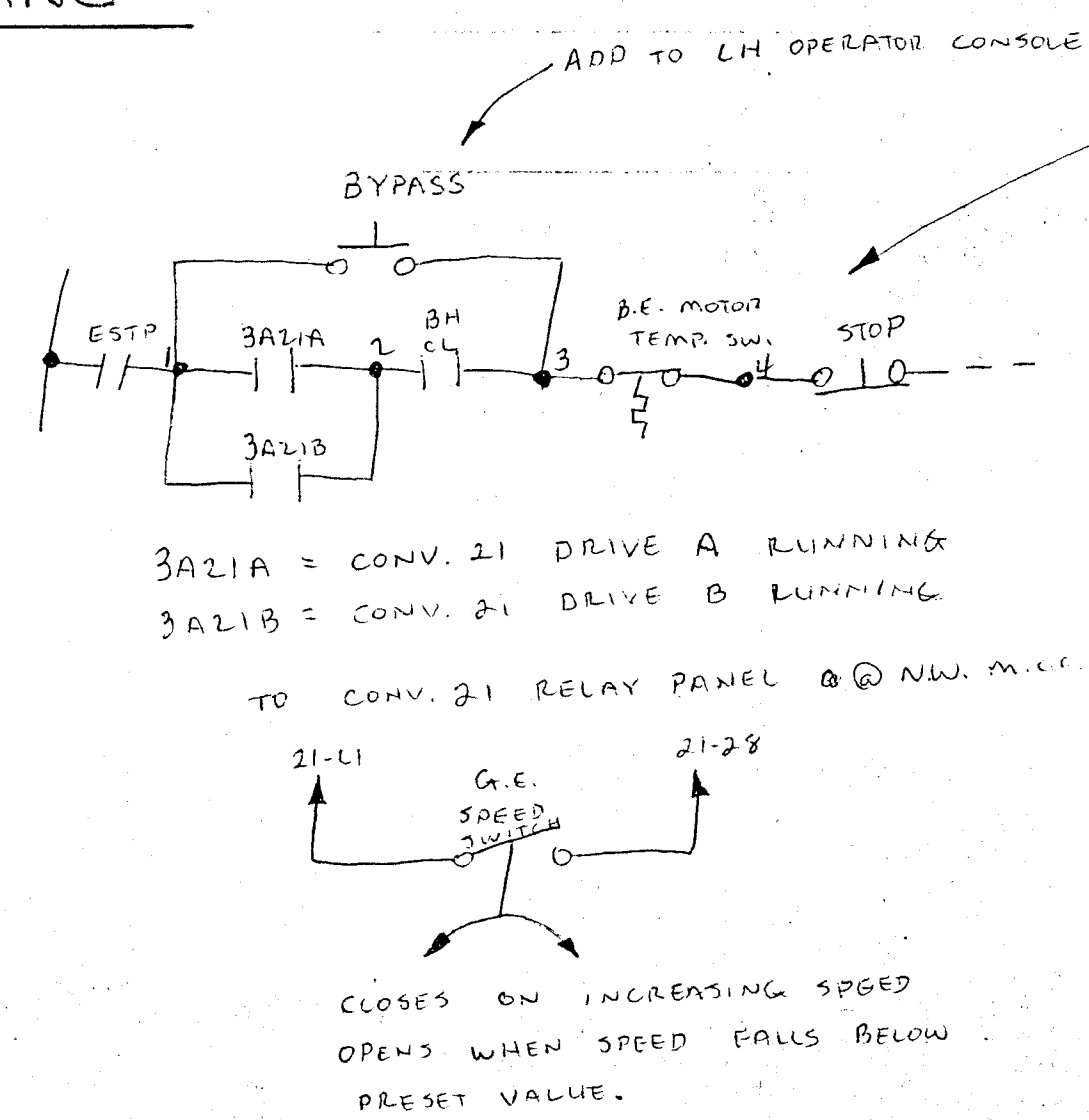 ADD TO LH OPERATOR CONSOLE
BYPASS
B.E. MOTOR
TEMP. SW.
STOP
ESTP
1
3A21A
2
BH
CL
3
4
3A21B
3A21A = CONV. 21 DRIVE A RUNNING
3A21B = CONV. 21 DRIVE B RUNNING
TO CONV. 21 RELAY PANEL @ N.W. M.C.C.
21-L1
21-28
G.E.
SPEED
SWITCH
CLOSES ON INCREASING SPEED
OPENS WHEN SPEED FALLS BELOW
PRESET VALUE.